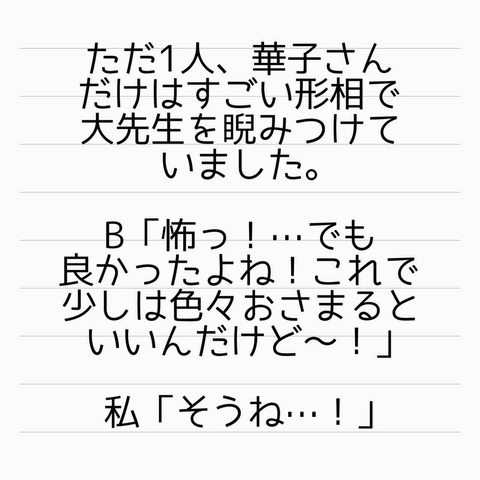 ただ1人、華子さん
だけはすごい形相で
大先生を睨みつけて
いました。
B「怖っ！…でも
良かったよね！これで
少しは色々おさまると
いいんだけど〜！」
私「そうね…！」